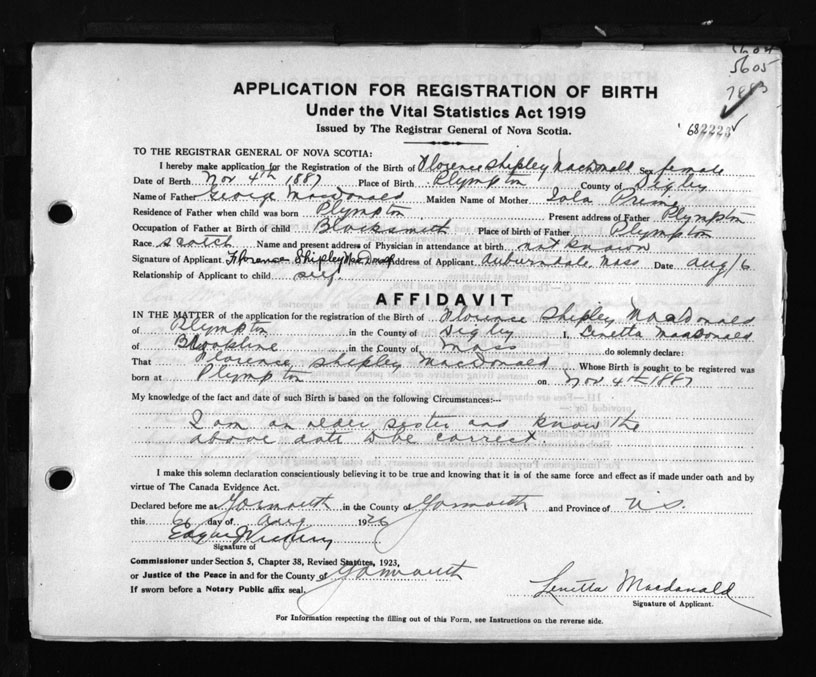 5605
7883
682223
APPLICATION FOR REGISTRATION OF BIRTH
Under the Vital Statistics Act 1919
Issued by The Registrar General of Nova Scotia.
TO THE REGISTRAR GENERAL OF NOVA SCOTIA:
I hereby make application for the Registration of the Birth of Florence Shipley Macdonald Sex female
Date of Birth Nov 4th 1887 Place of Birth Plympton County of Digby
Name of Father George Macdonald Maiden Name of Mother Iola Prime
Residence of Father when child was born Plympton Present address of Father Plympton
Occupation of Father at Birth of child Blacksmith Place of birth of Father, Plympton
Race scotch Name and present address of Physician in attendance at birth not known
Signature of Applicant. Florence Shipley MacDonald Address of Applicant. Auburndale, Mass Date Aug/6
Relationship of Applicant to child self.
AFFIDAVIT
IN THE MATTER of the application for the registration of the Birth of Florence Shipley MacDonald
of Plympton in the County of Digby I, Lenetta MacDonald
of Brookline in the County of Mass do solemnly declare:
That Florence Shipley MacDonald Whose Birth is sought to be registered was
born at Plympton on Nov 4th 1887
My knowledge of the fact and date of such Birth is based on the following Circumstances:--
I am an older sister and know the
above date to be correct.
I make this solemn declaration conscientiously believing it to be true and knowing that it is of the same force and effect as if made under oath and by
virtue of The Canada Evidence Act.
Declared before me at Yarmouth in the County of Yarmouth and Province of N.S.
this 6 day of Aug 1926
Signature of
Commissioner under Section 5, Chapter 38, Revised Statutes, 1923,
or Justice of the Peace in and for the County of Yarmouth
If sworn before a Notary Public affix seal.
Lenetta Macdonald
Signature of Applicant.
For Information respecting the filling out of this Form, see Instructions on the reverse side.